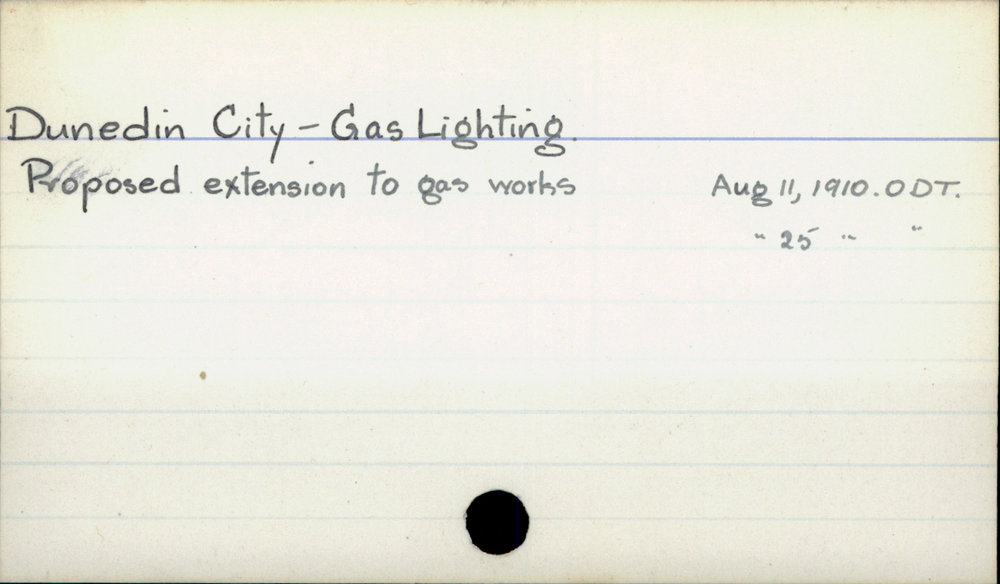 Dunedin City - Gas Lighting.
Proposed extension to gas works Aug 11, 1910. ODT.
" 25 " "